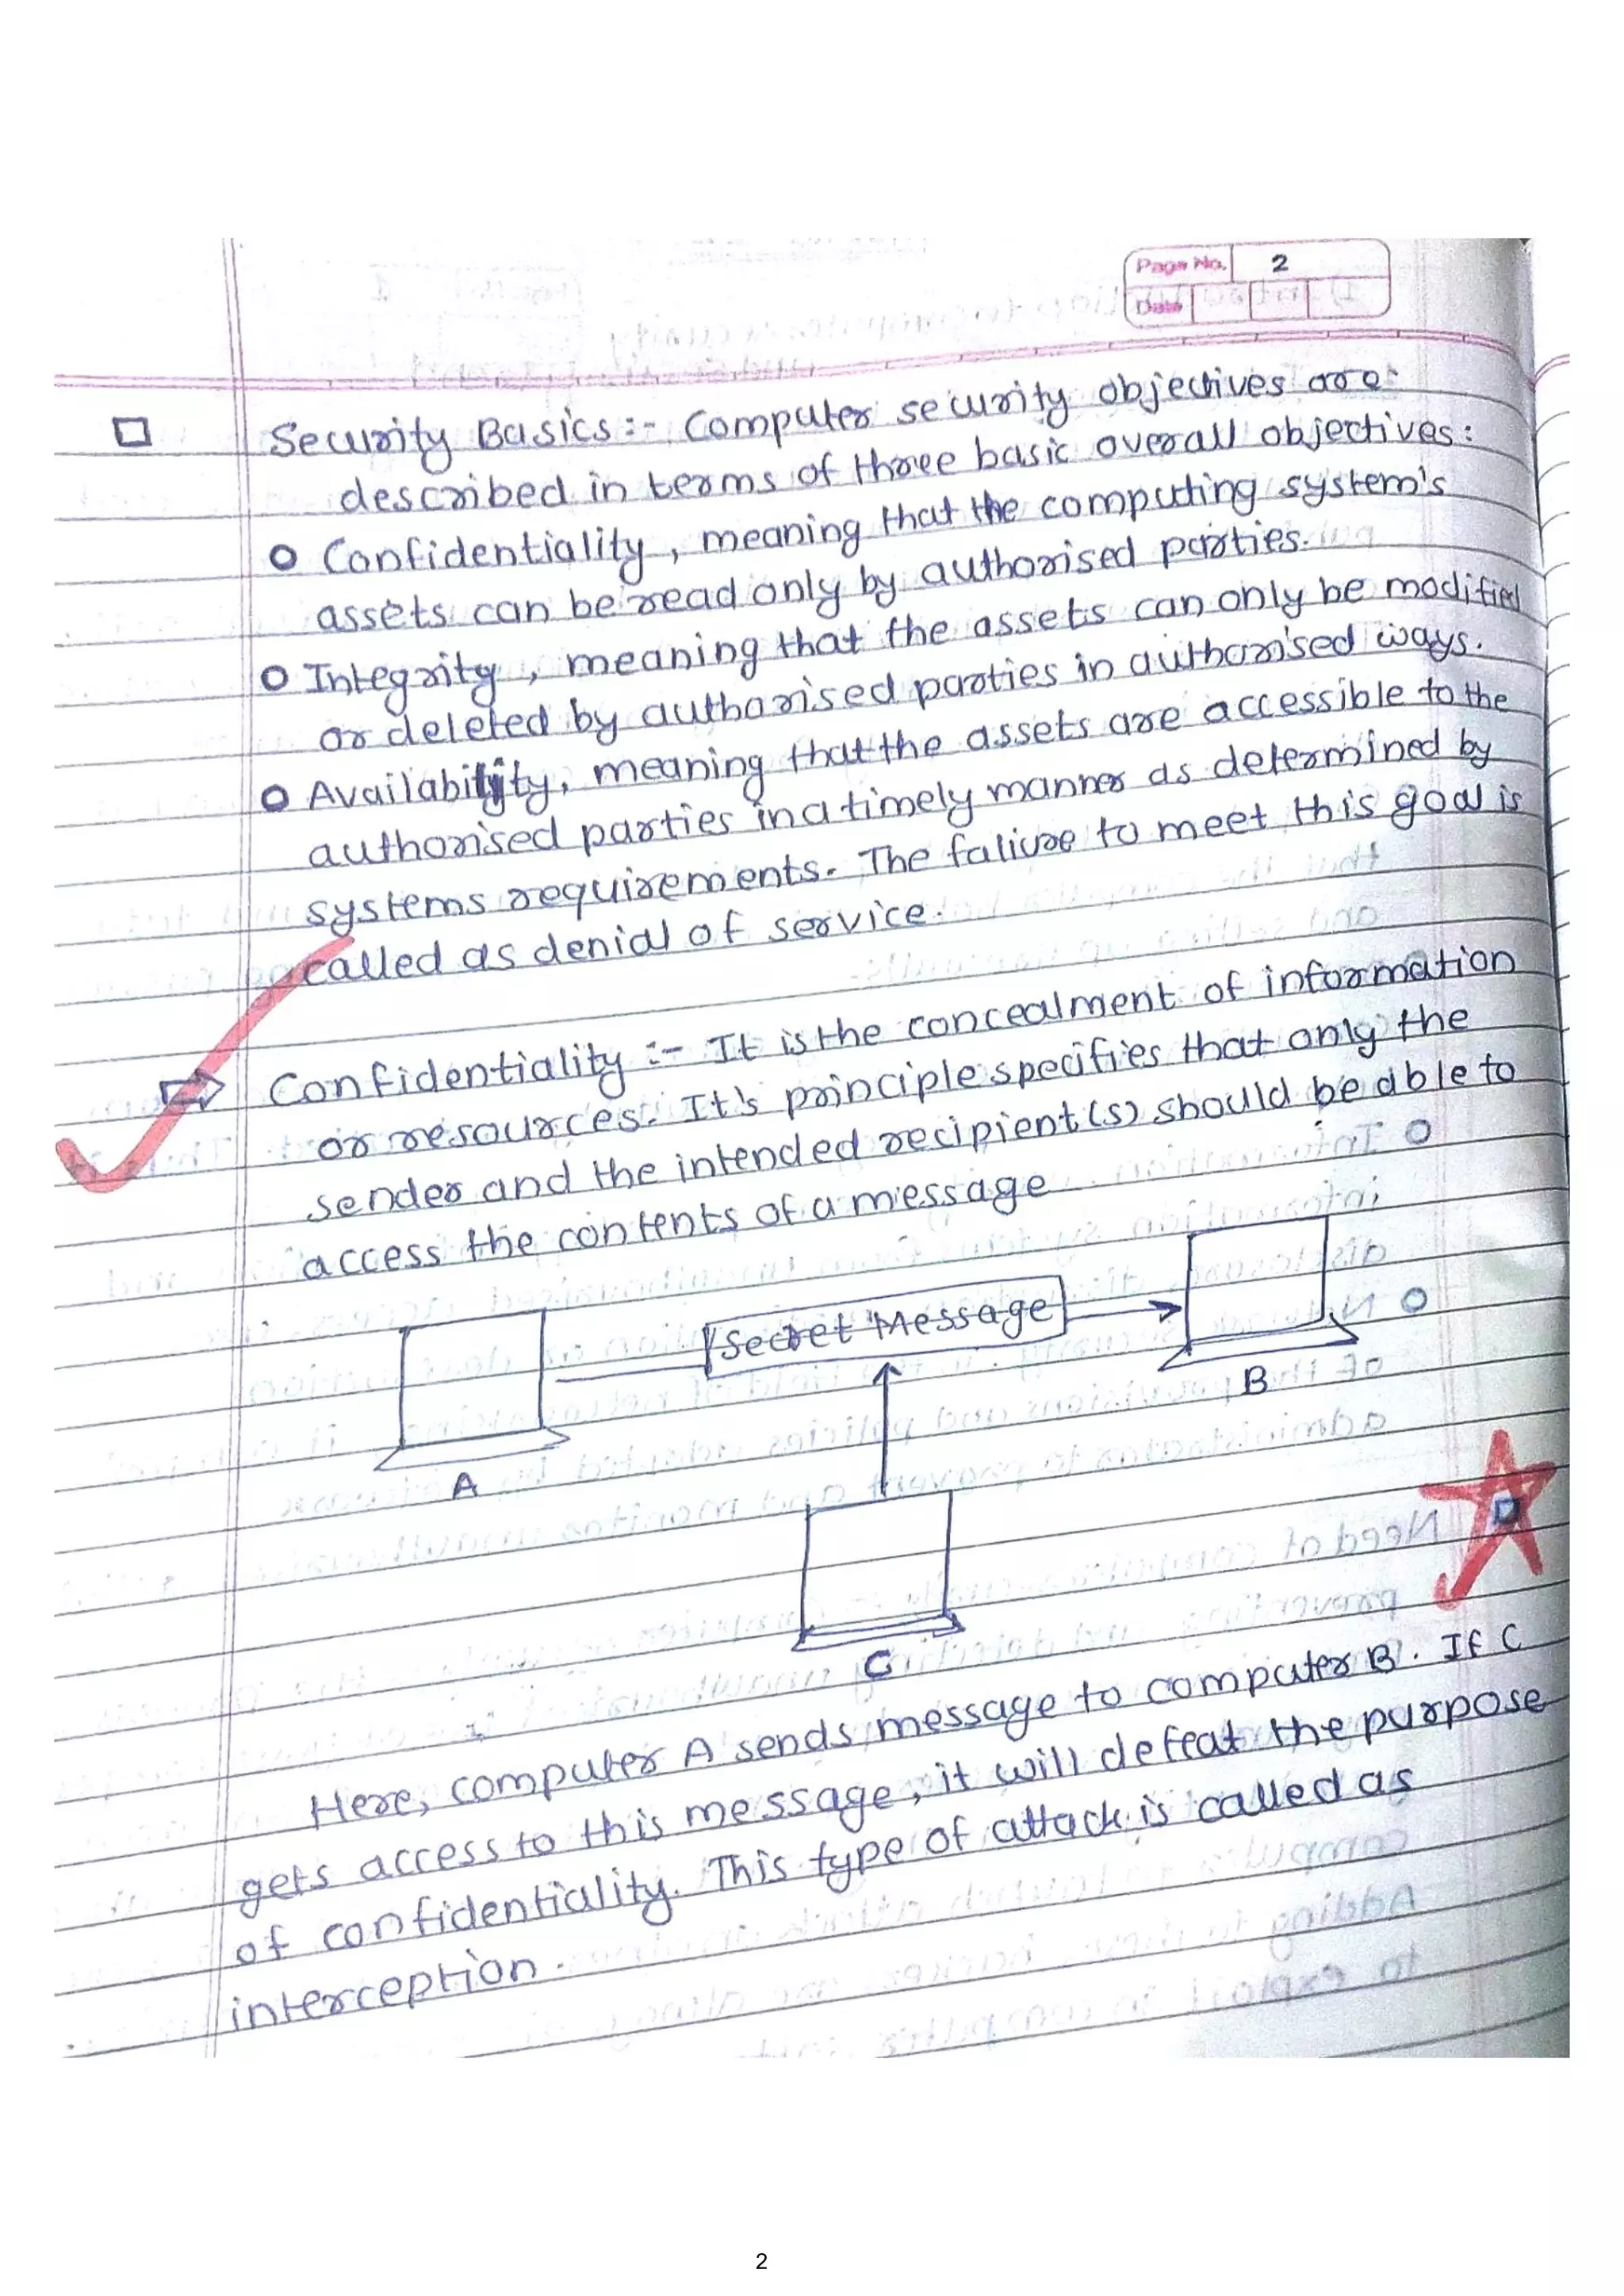 Page No. 2
Date
Security Basics :- Computer security objectives are:
described in terms of three basic overall objectives:
Confidentiality, meaning that the computing system's
assets can be read only by authorised parties.
Integrity, meaning that the assets can only be modified
or deleted by authorised parties in authorised ways.
Availability, meaning that the assets are accessible to the
authorised parties in a timely manner as determined by
systems requirements. The faliure to meet this goal is
called as denial of service.
Confidentiality :- It is the concealment of information
or resources. It's principle specifies that only the
sender and the intended recipient(s) should be able to
access the contents of a message
Secret Message
B
A
C
Here, computer A sends message to computer B. If C
gets access to this message, it will defeat the purpose
of confidentiality. This type of attack is called as
interception.
2